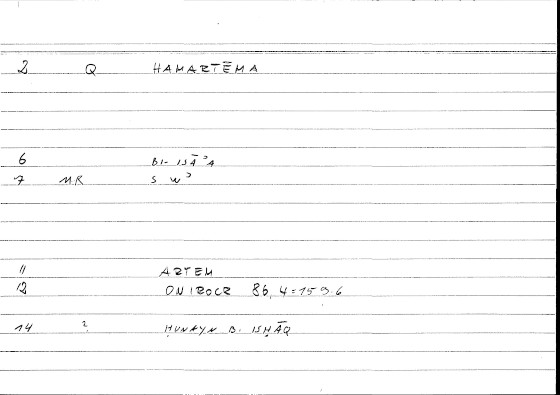 2 Q HAMARTĒMA
6 BI- ISĀʾA
7 MR S Wʾ
11 ARTEM
12 ONIROCR 86, 4=159.6
14 ? ḤUNAYN B. ISḤĀQ